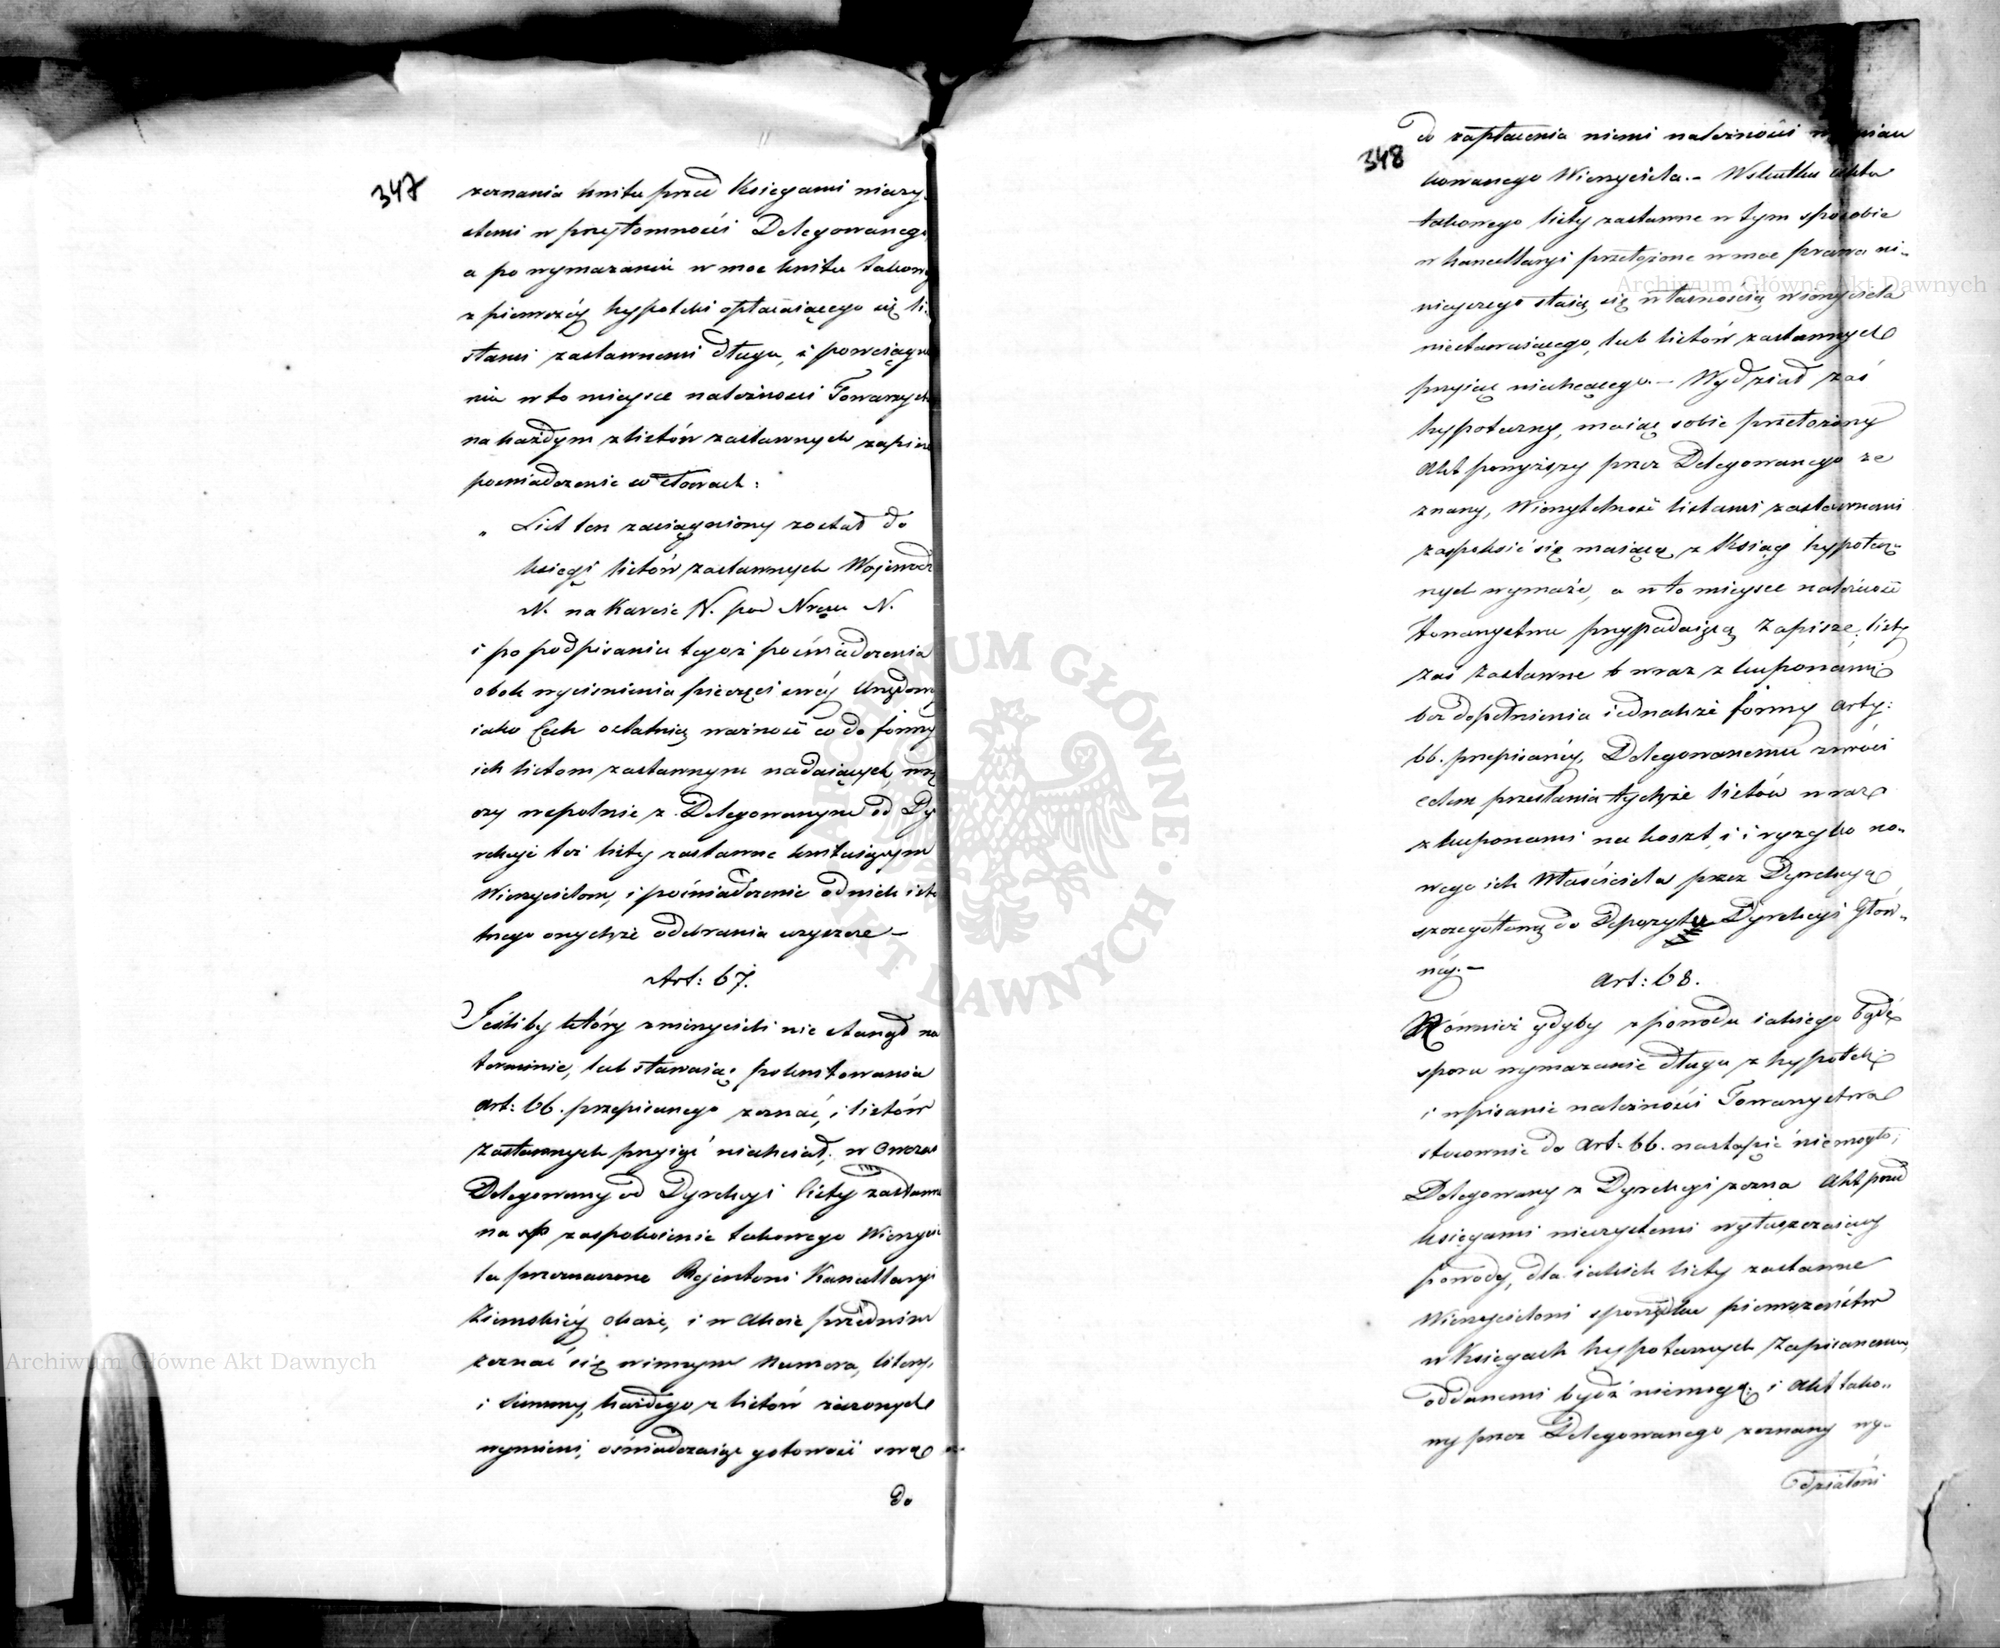 347
zeznania kwitu przed Księgami wieczy-
stemi w przytomności Delegowanego
a po wymazaniu w moc kwitu takowego
z pierwszéy hypoteki opłacaiącego się li-
stami zastawnemi długu, i powciągnie
niu w to mieysce należności Towarzystwa
na każdym z listów zastawnych zapisze
poświadczenie w słowach:
„ List ten zaciągniony został do
księgi listów zastawnych Wojewodz.
N. na Karcie N. pod Nrem N.
i po podpisaniu tegoż poświadczenia
obok wyciśnienia pieczęci swéy Urzędowéy
iako Cech ostatnią ważność co do formy
ich listom zastawnym nadaiących, wrę
czy wspólnie z Delegowanym od Dy
rekcyi też listy zastawne kwituiącym
Wierzycielom, i poświadczenie od nich isto
tnego onychże odebrania uzyszcze –
Art: 67.
Jeśliby który z wierzycieli nie stanął na
terminie, lub stawaiąc pokwitowania
art: 66. przepisanego zeznać, i listów
zastawnych przyiąć niechciał; w ówczas
Delegowany od Dyrekcyi listy zastawne
na zaspokoienie takowego Wierzycie
la przeznaczone Rejentowi Kancellaryi
Ziemskiéy okaże, i w Akcie przed nim
zeznać się winnym Numera, litery,
i Summy, każdego z listów rzeczonych
wymieni, oświadczaiąc gotowość swą
do
348
do zapłacenia niemi należności wzmian
kowanego Wierzyciela.– Wskutku Aktu
takowego listy zastawne w tym sposobie
w kancellaryi przełożone w moc prawa ni-
nieyszego staią się własnością wierzyciela
niestawaiącego, lub listów zastawnych
przyiąć niechcącego.– Wydział zaś
hypoteczny, maiąc sobie przełożony
Akt powyższy przez Delegowanego ze
znany, Wierzytelność listami zastawnemi
zaspokoić się maiącą z Ksiąg hypotecz-
nych wymaże, a w to mieysce należność
Towarzystwu przypadaiącą Zapisze; listy
zaś zastawne wraz z kuponami
bez dopełnienia iednakże formy arty:
66. przepisanéy, Delegowanemu zwróci
celem przesłania tychże listów wraz
z kuponami na koszt i ryzyko no-
wego ich Właściciela przez Dyrekcyą
szczegółową do Depozytu Dyrekcyi Głów-
néy.–
Art: 68.
Również gdyby z powodu iakiego bądź
sporu wymazanie długu z hypoteki
i wpisanie należności Towarzystwa
stosownie do Art: 66. nastąpić niemogło;
Delegowany z Dyrekcyi zezna Akt przed
księgami wieczystemi wyłuszczaiący
powody, dla iakich listy zastawne
Wierzycielowi sporządku pierwszeństw
w Księgach hypotecznych Zapisanemu,
oddanemi bydź niemogą; i Akt tako-
wy przez Delegowanego zeznany wy-
działowi